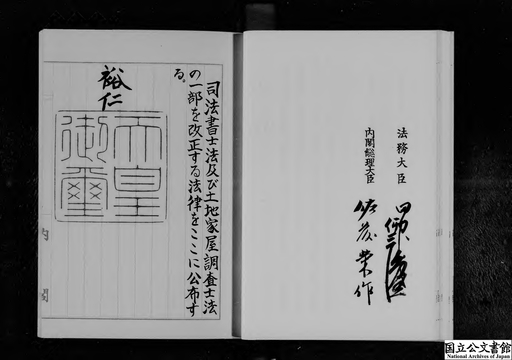 法務大臣
内閣総理大臣
佐藤榮作
司法書士法及び土地家屋調査士法
の一部を改正する法律をここに公布す
る。
裕仁
天皇
御璽
国立公文書館
National Archives of Japan